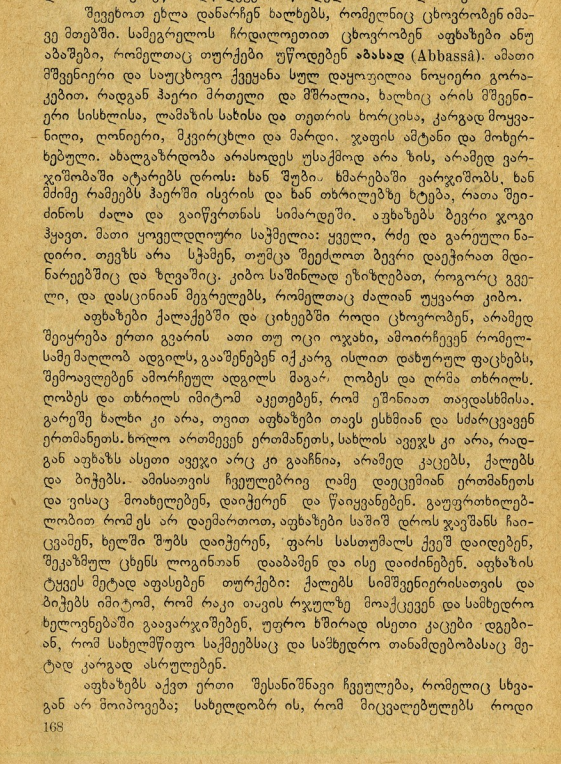 შევეხოთ ეხლა დანარჩენ ხალხებს, რომელნიც ცხოვრობენ იმა-
ვე მთებში. სამეგრელოს ჩრდილოეთით ცხოვრობენ აფხაზები ანუ
აბაშები, რომელთაც თურქები უწოდებენ აბასად (Abbassâ). ამათი
მშვენიერი და საუცხოვო ქვეყანა სულ დაყოფილია ნოყიერი გორა-
კებით. რადგან ჰაერი მრთელი და მშრალია, ხალხიც არის მშვენი-
ერი სისხლისა, ლამაზის სახისა და თეთრის ხორცისა, კარგად მოყვა-
ნილი, ღონიერი, მკვირცხლი და მარდი. ჯაფის ამტანი და მოხერ-
ხებული. ახალგაზრდობა არასოდეს უსაქმოდ არა ზის, არამედ ვარ-
ჯიშობაში ატარებს დროს: ხან შუბის ხმარებაში ვარჯიშობს, ხან
მძიმე რამეებს ჰაერში ისვრის და ხან თხრილებზე ხტება, რათა შეი-
ძინოს ძალა და გაიწვრთნას სიმარდეში. აფხაზებს ბევრი ჯოგი
ჰყავთ. მათი ყოველდღიური საჭმელია: ყველი, რძე და გარეული ნა-
დირი. თევზს არა სჭამენ, თუმცა შეეძლოთ ბევრი დაეჭირათ მდი-
ნარეებშიც და ზღვაშიც. კიბო საშინლად ეზიზღებათ, როგორც გვე-
ლი, და დასცინიან მეგრელებს, რომელთაც ძალიან უყვართ კიბო.
აფხაზები ქალაქებში და ციხეებში როდი ცხოვრობენ, არამედ
შეიყრება ერთი გვარის ათი თუ ოცი ოჯახი, ამოირჩევენ რომელ-
სამე მაღლობ ადგილს, გააშენებენ იქ კარგ ისლით დახურულ ფაცხებს,
შემოავლებენ ამორჩეულ ადგილს მაგარ ღობეს და ღრმა თხრილს.
ღობეს და თხრილს იმიტომ აკეთებენ, რომ ეშინიათ თავდასხმისა.
გარეშე ხალხი კი არა, თვით აფხაზები თავს ესხმიან და სძარცვავენ
ერთმანეთს. ხოლო ართმევენ ერთმანეთს, სახლის ავეჯს კი არა, რად-
გან აფხაზს ასეთი ავეჯი არც კი გააჩნია, არამედ კაცებს, ქალებს
და ბიჭებს. ამისათვის ჩვეულებრივ ღამე დაეცემიან ერთმანეთს
და ვისაც მოახელებენ, დაიჭერენ და წაიყვანებენ. გაუფრთხილებ-
ლობით რომ ეს არ დაემართოთ, აფხაზები საშიშ დროს ჯავშანს ჩაი-
ცვამენ, ხელში შუბს დაიჭერენ, ფარს სასთუმალს ქვეშ დაიდებენ,
შეკაზმულ ცხენს ლოგინთან დააბამენ და ისე დაიძინებენ. აფხაზის
ტყვეს მეტად აფასებენ თურქები: ქალებს სიმშვენიერისათვის და
ბიჭებს იმიტომ, რომ რაკი თავის რჯულზე მოაქცევენ და სამხედრო
ხელოვნებაში გაავარჯიშებენ, უფრო ხშირად ისეთი კაცები დგები-
ან, რომ სახელმწიფო საქმეებსაც და სამხედრო თანამდებობასაც მე-
ტად კარგად ასრულებენ.
აფხაზებს აქვთ ერთი შესანიშნავი ჩვეულება, რომელიც სხვა-
გან არ მოიპოვება; სახელდობრ ის, რომ მიცვალებულებს როდი
168